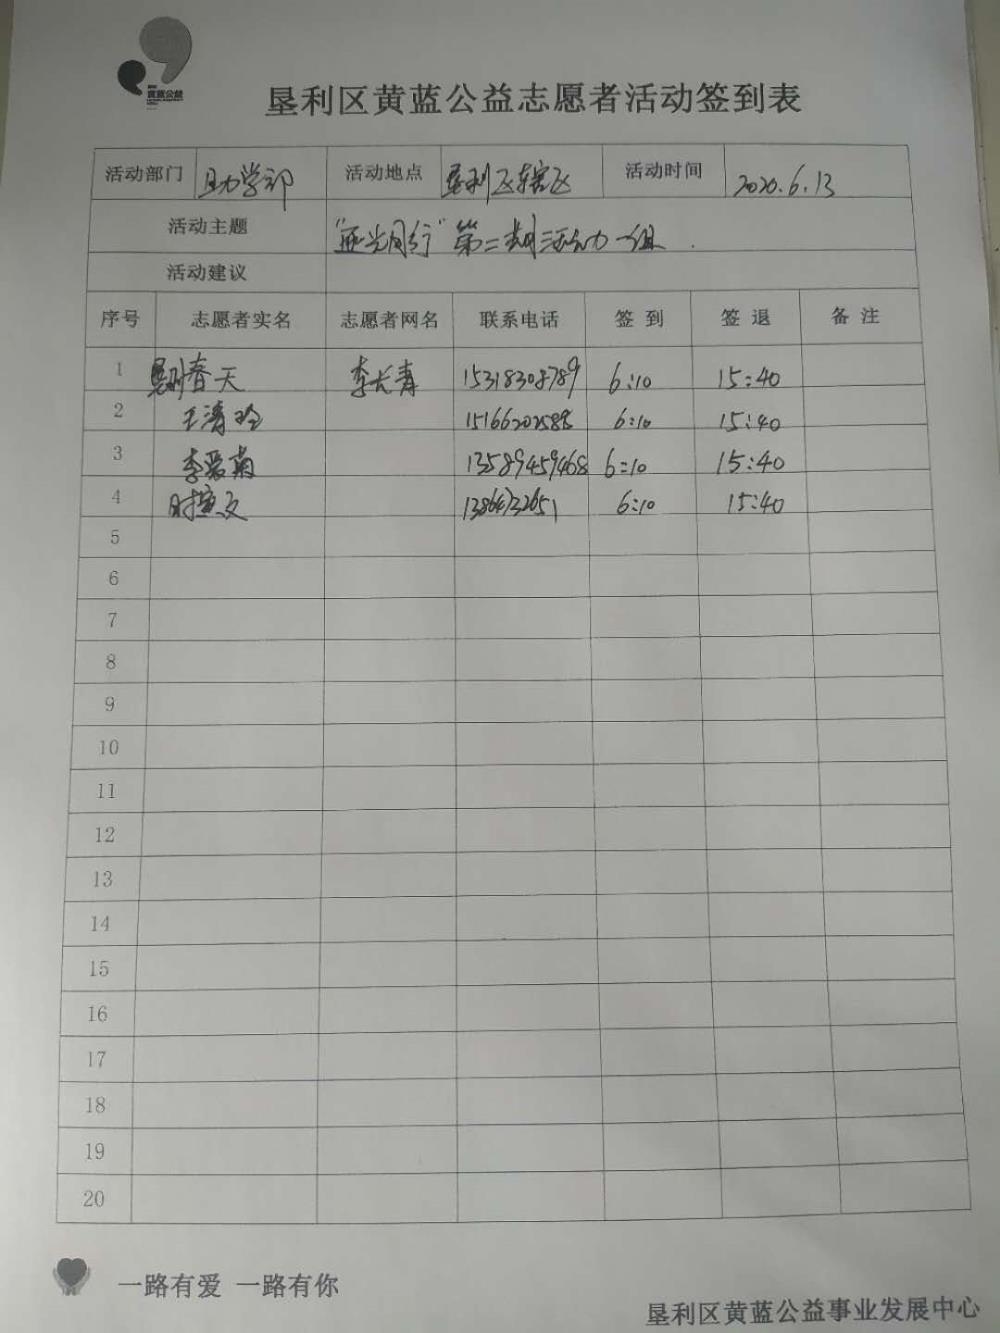 黄蓝公益
垦利区黄蓝公益志愿者活动签到表
活动部门 助学部 活动地点 垦利区辖区 活动时间 2020.6.13
活动主题 光同行" 第二划活动一组.
活动建议
序号 志愿者实名 志愿者网名 联系电话 签到 签退 备注
1 垦利春天 李长青 15318308789 6:10 15:40
2 王涛玲 15166202588 6:10 15:40
3 李爱菊 13589459468 6:10 15:40
4 6:10 15:40
5
6
7
8
9
10
11
12
13
14
15
16
17
18
19
20
一路有爱 一路有你
垦利区黄蓝公益事业发展中心